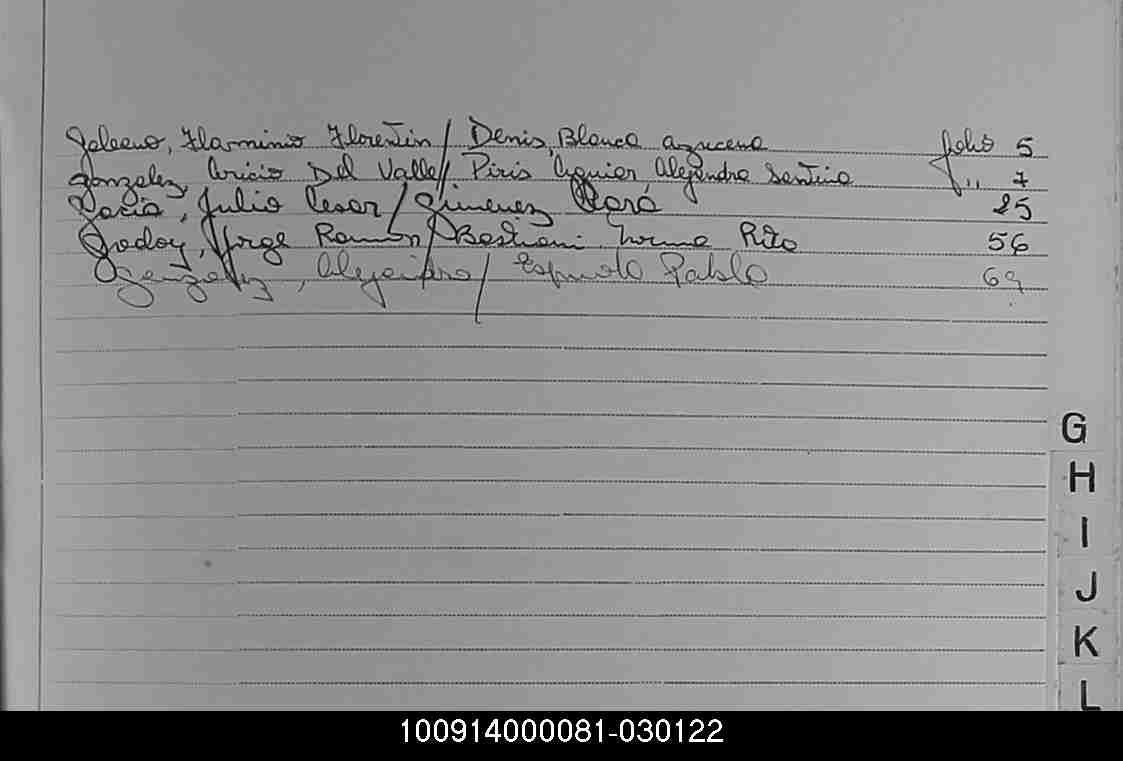 Galeano, Flaminio Florentin / Denis, Blanca Azucena folio 5
Gonzalez, Del Valle / Piris Alejandra f " 7
Garcia, Julio Cesar / Gimenez 25
Godoy, Jorge Ramón / Bestiani Norma Rita 56
Gonzalez, Alejandro / Pablo 69
G
H
I
J
K
L
100914000081-030122